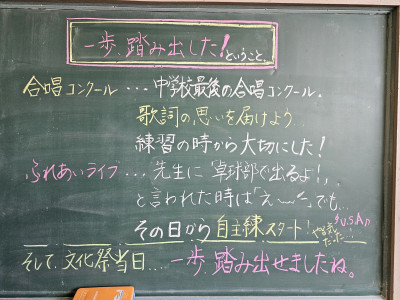 一歩、踏み出した!ということ。
合唱コンクール・・・中学校最後の合唱コンクール。
歌詞の思いを届けよう
練習の時から大切にした!
ふれあいライブ・・・先生に「卓球部で出るよ!」
と言われた時は「え~~」でも…
その日から自主練スタート!
U.S.A
そして、文化祭当日・・・一歩、踏み出せましたね。